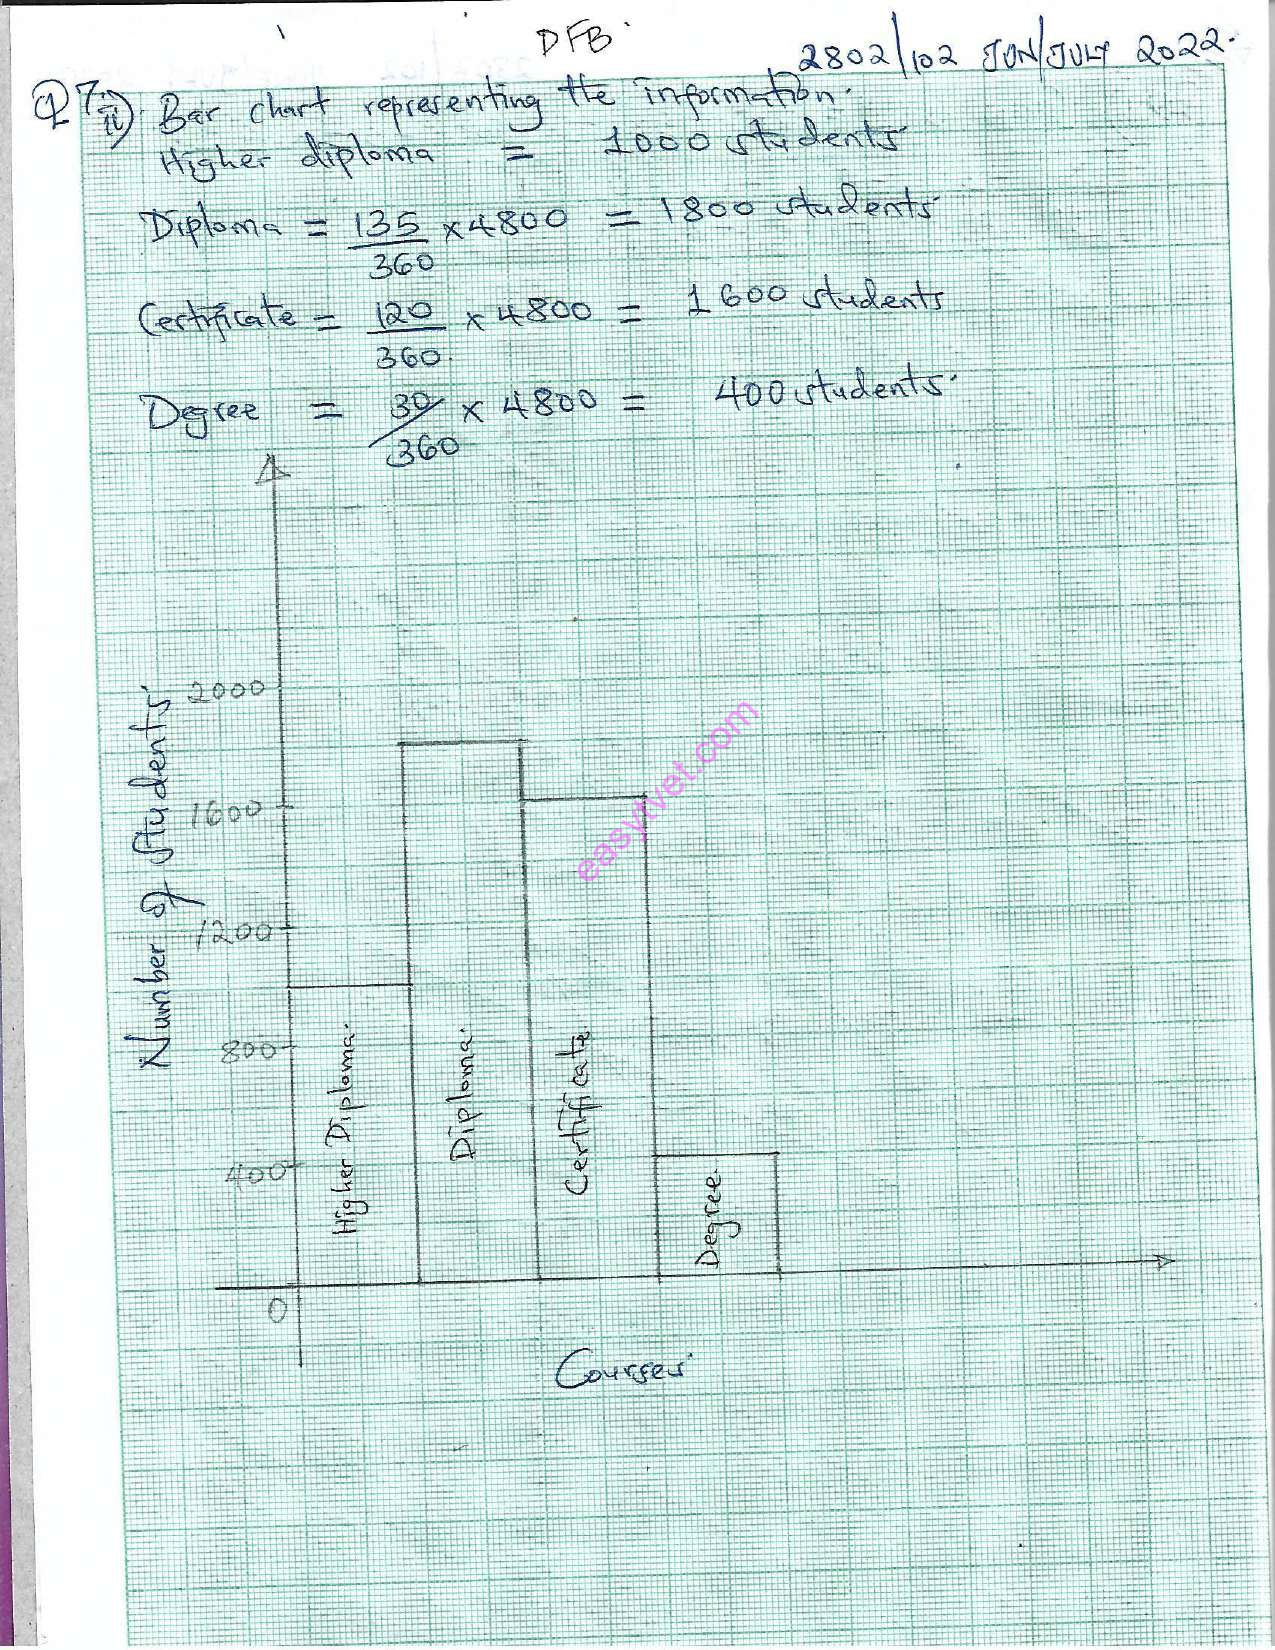 DFB
2802/102 JUN/JULY 2022.
Q7. ii) Bar chart representing the information.
Higher diploma = 1000 students
Diploma = 135/360 × 4800 = 1800 students
Certificate = 120/360 × 4800 = 1600 students
Degree = 30/360 × 4800 = 400 students.
Number of students
2000
1600
1200
800
400
0
Higher Diploma.
Diploma.
Certificate
Degree.
Courses
easytvet.com